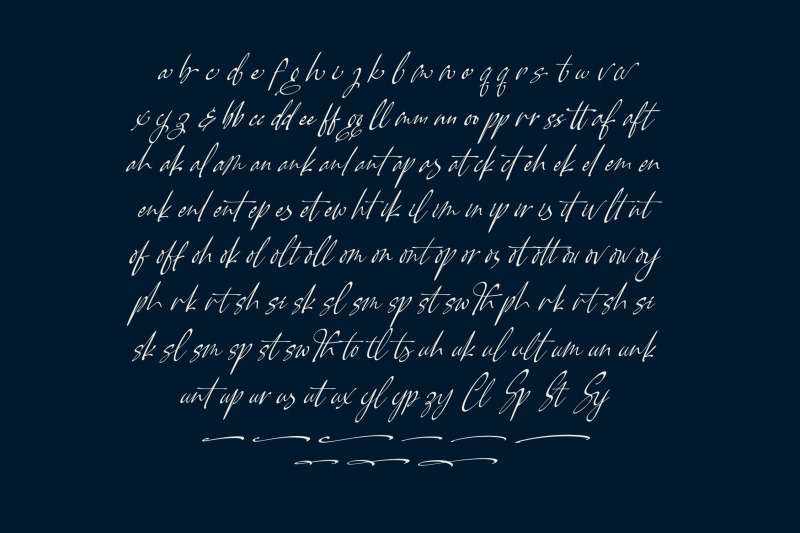 a b c d e f g h i z k l m n o q q r s t u v w
x y z & bb cc dd ee ff gg ll mm nn oo pp rr ss tt af aft
ah ak al am an ank anl ant ap as at ck ct eh ek el em en
enk enl ent ep es et ew ht ik il im in ip ir is it iv lt nt
of off oh ok ol olt oll om on ont op or os ot ott ou ov ow oy
ph rk rt sh si sk sl sm sp st sw Th ph rk rt sh si
sk sl sm sp st sw Th to tl ts uh uk ul ult um un unk
unt up ur us ut ux yl yp zy Cl Sp St Sy